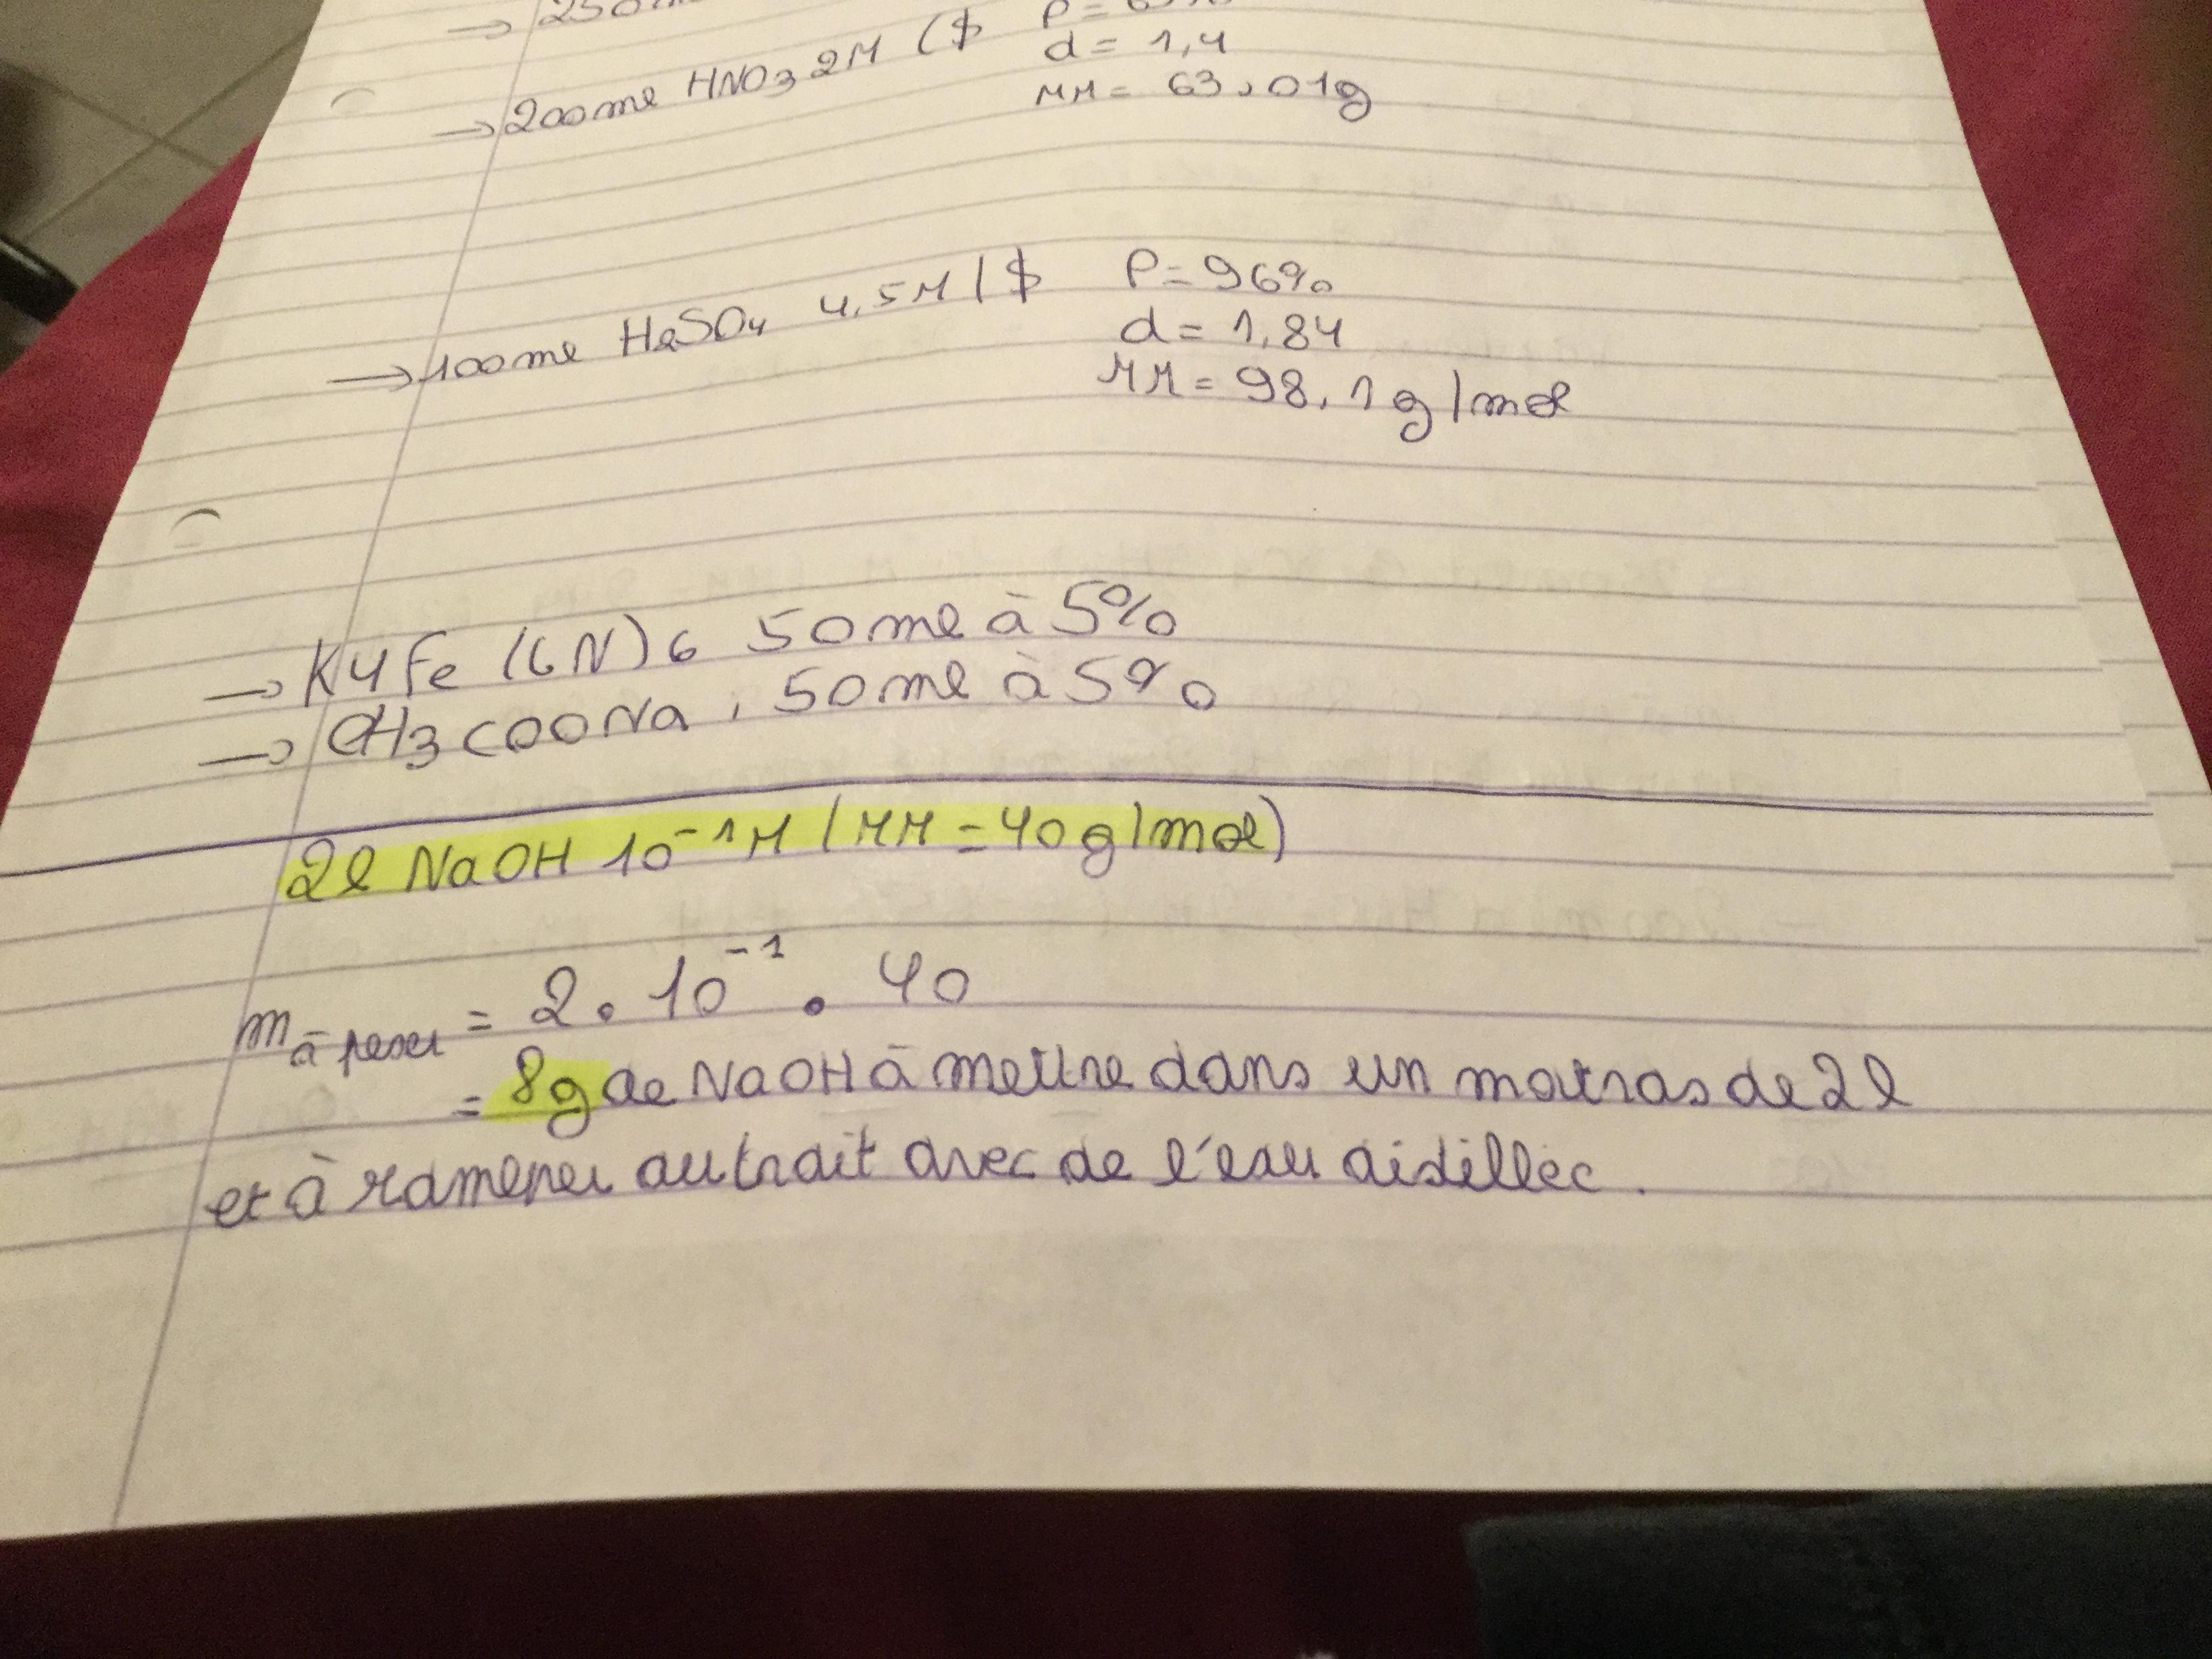 → 250m
→ 200ml HNO3 2M ($ P = 65%
d = 1,4
MM = 63,01g
→ 100ml H2SO4 4,5M ($ P = 96%
d = 1,84
MM = 98,1g/mol
→ K4Fe (CN)6 50ml à 5%
→ CH3COONa, 50ml à 5%
2l NaOH 10⁻¹M (MM = 40g/mol)
m à peser = 2 . 10⁻¹ . 40
= 8g de NaOH à mettre dans un matras de 2l
et à ramener au trait avec de l'eau distillée.